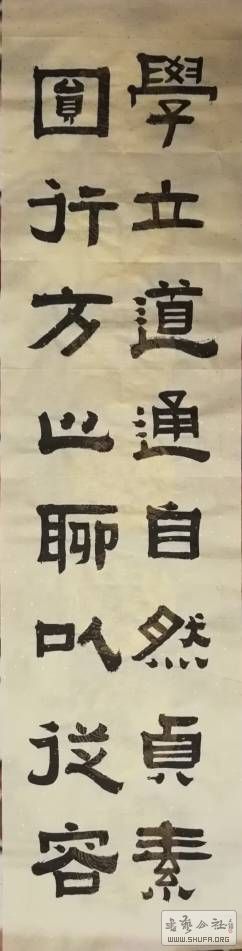 學立道通自然貞素
圓行方止聊以從容
书艺公社
WWW.SHUFA.ORG